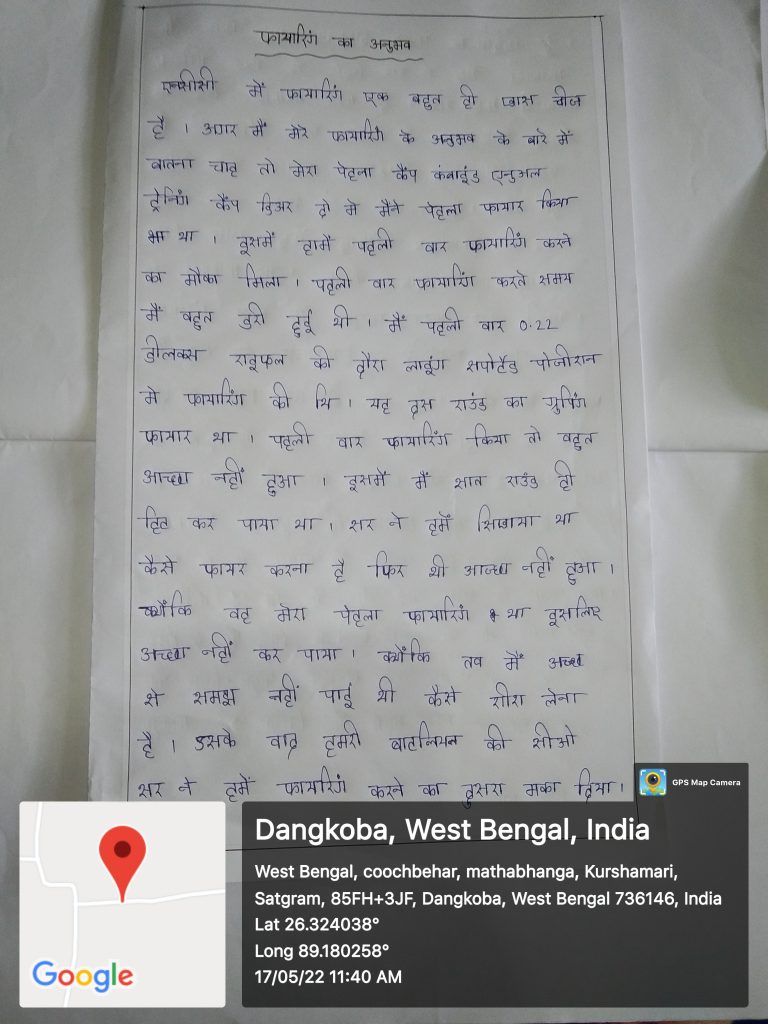 फायारिंग का अनुभव
एनसीसी में फायारिंग एक बहुत ही खास चीज
है । अगर मैं मेरे फायारिंग के अनुभव के बारे में
बातना चाह तो मेरा पेहला कैंप कंबाइंड एनुअल
ट्रेनिंग कैंप डिअर दो मे मैने पेहला फायार किया
था । इसमें हामें पहली बार फायारिंग करने
का मौका मिला । पहली बार फायारिंग करते समय
मैं बहुत डरी हुई थी । मैं पहली बार 0.22
डीलक्स राइफल की द्वौरा लाइंग सपोर्टेड पोजीशन
मे फायारिंग की थि । यह दस राउंड का ग्रुपिंग
फायार था । पहली बार फायारिंग किया तो बहुत
आच्छा नहीं हुआ । इसमें मैं सात राउंड ही
हिट कर पाया था । सर ने हमें सिखाया था
कैसे फायर करना है फिर भी आच्छा नहीं हुआ ।
क्योंकि वह मेरा पेहला फायारिंग था इसलिए
अच्छा नहीं कर पाया । क्योंकि तब मैं अच्छा
से समझ नहीं पाई थी कैसे सीरा लेना
है । उसके बाद हमरी बाटलियन की सीओ
सर ने हमें फायारिंग करने का दुसरा मका दिया ।
GPS Map Camera
Google
Dangkoba, West Bengal, India
West Bengal, coochbehar, mathabhanga, Kurshamari,
Satgram, 85FH+3JF, Dangkoba, West Bengal 736146, India
Lat 26.324038°
Long 89.180258°
17/05/22 11:40 AM